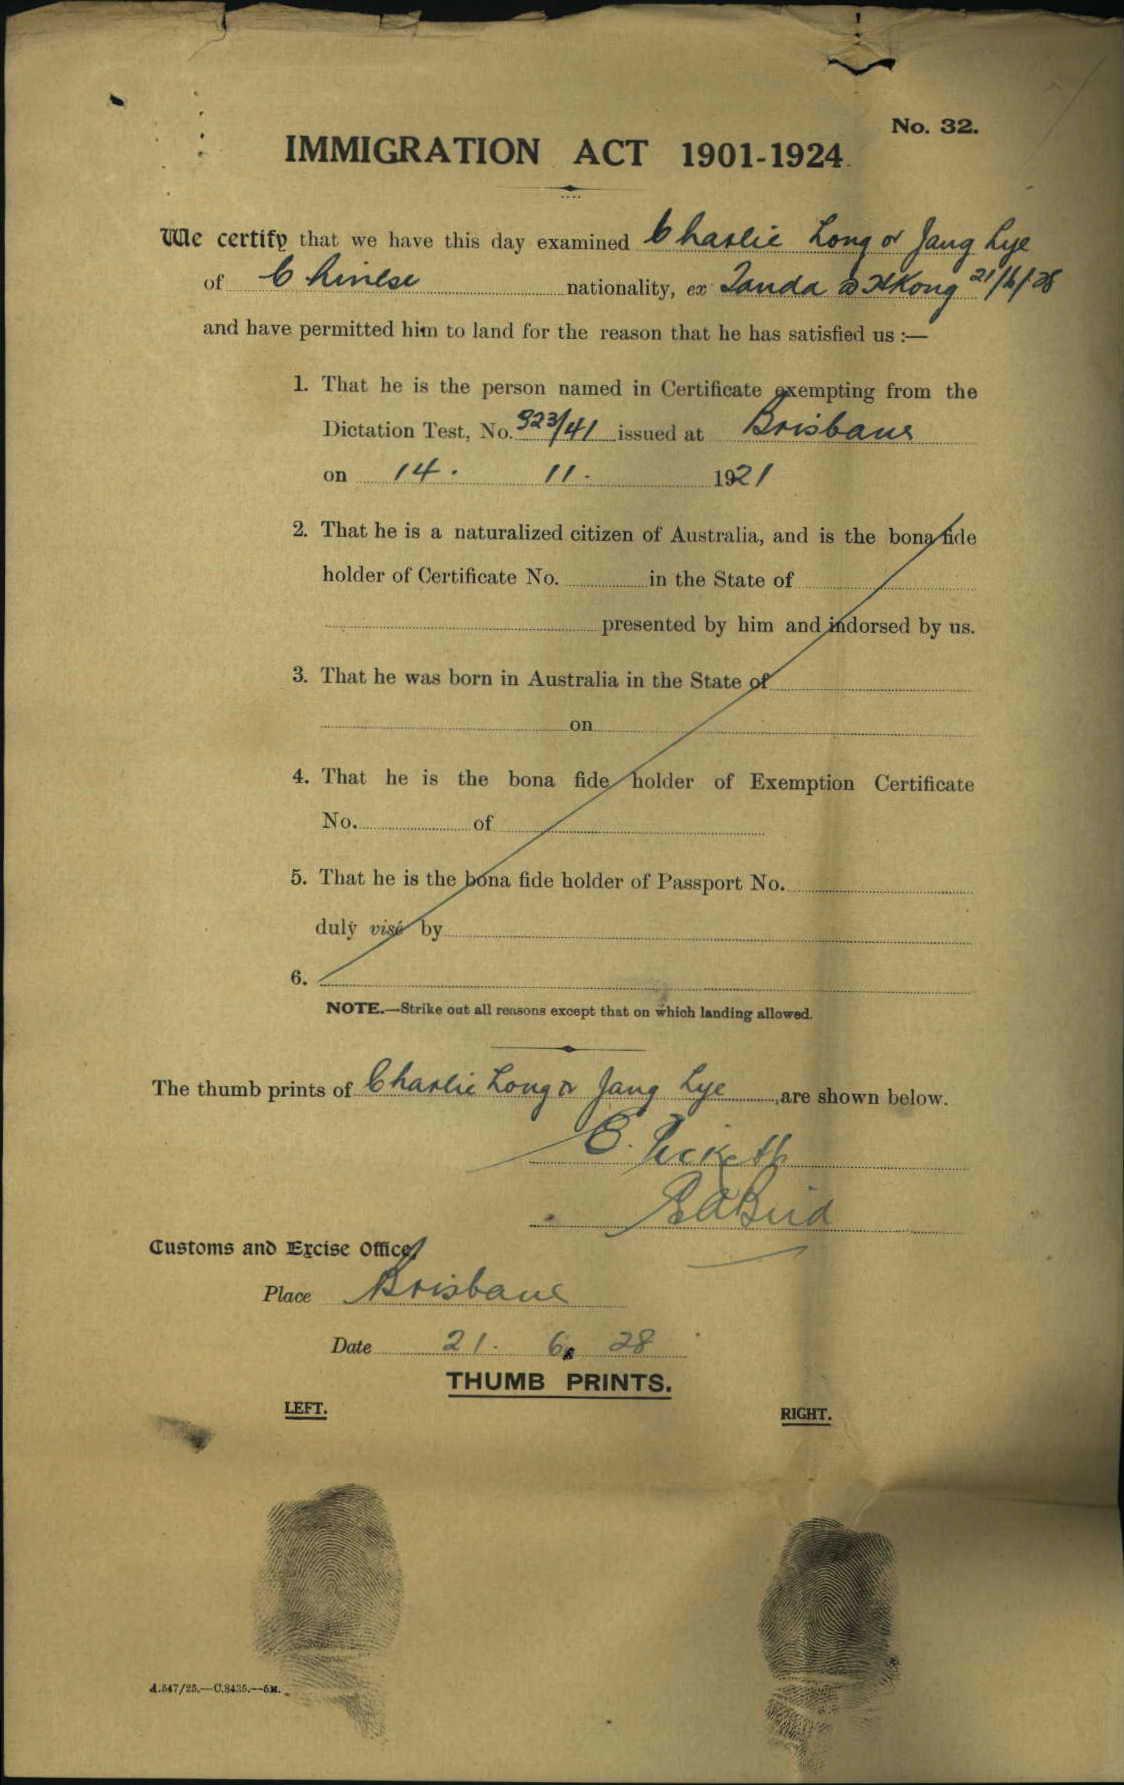 No. 32.
IMMIGRATION ACT 1901-1924.
We certify that we have this day examined Charlie Long or Jang Lye
of Chinese nationality, ex Tanda @ HKong 21/6/28
and have permitted him to land for the reason that he has satisfied us :—
1. That he is the person named in Certificate exempting from the
Dictation Test, No. 323/41 issued at Brisbane
on 14. 11. 1921
2. That he is a naturalized citizen of Australia, and is the bona fide
holder of Certificate No. in the State of
presented by him and indorsed by us.
3. That he was born in Australia in the State of
on
4. That he is the bona fide holder of Exemption Certificate
No. of
5. That he is the bona fide holder of Passport No.
duly visé by
6.
NOTE.—Strike out all reasons except that on which landing allowed.
The thumb prints of Charlie Long or Jang Lye, are shown below.
E.
E A Bird
Customs and Excise Office,
Place Brisbane
Date 21. 6. 28
THUMB PRINTS.
LEFT.
RIGHT.
A.547/25.—C.8435.—5M.